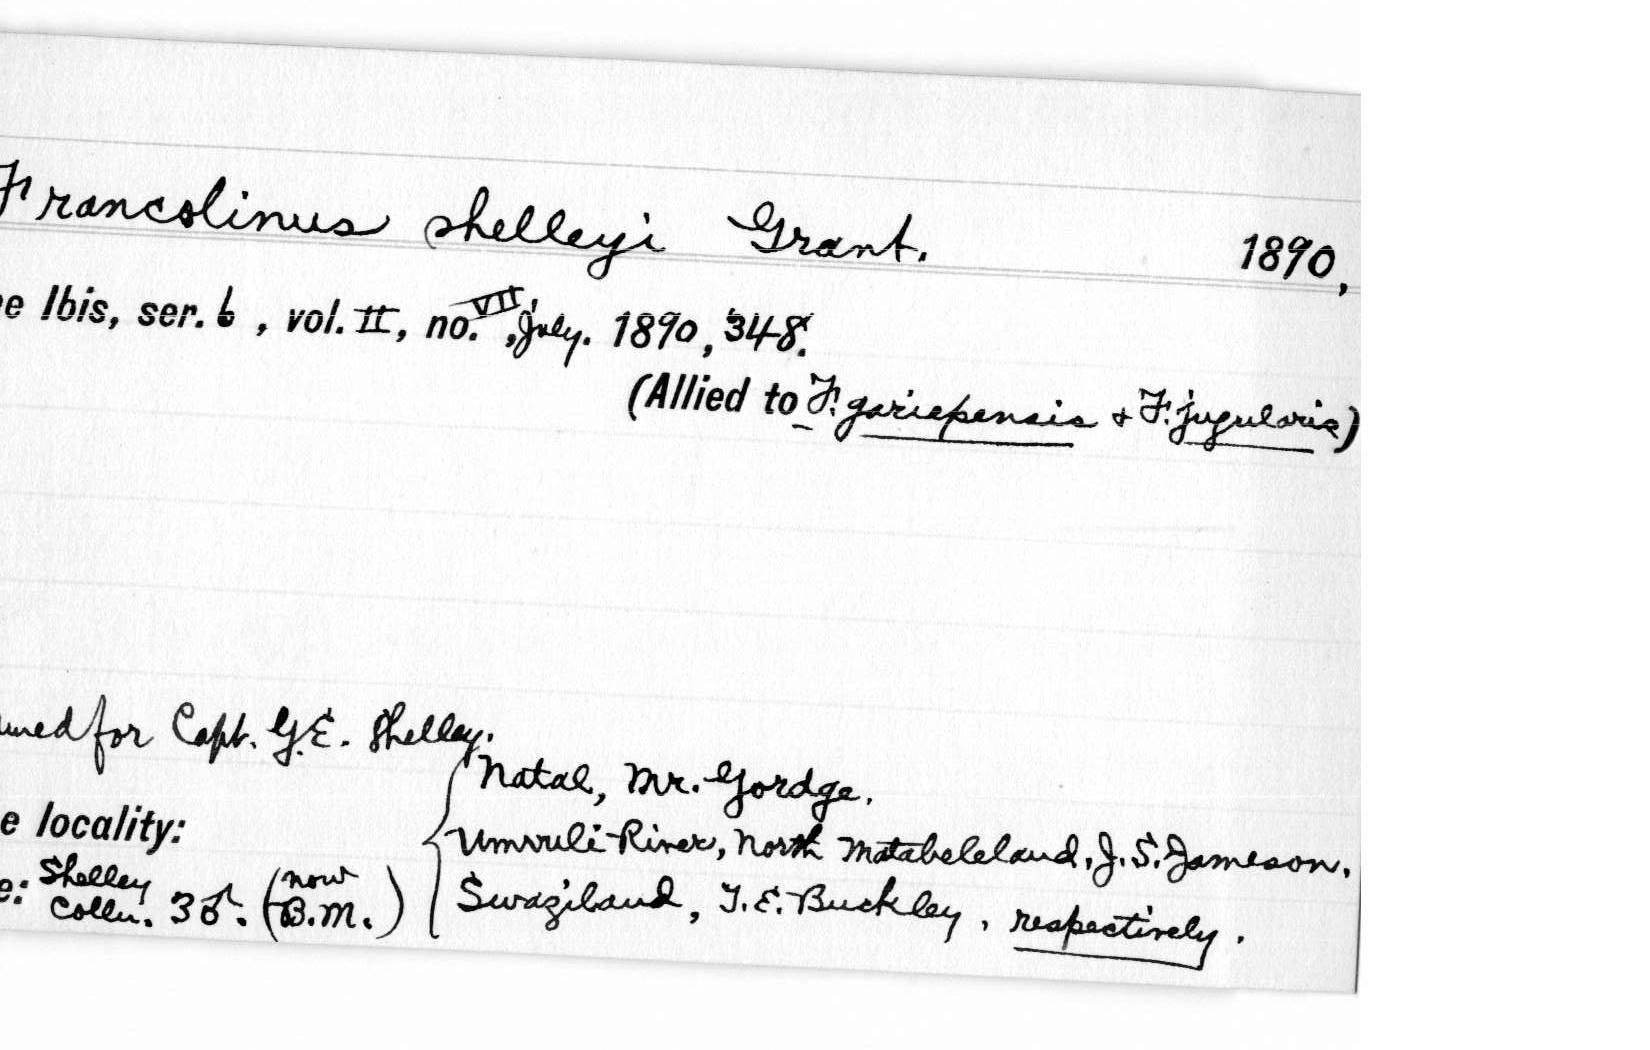 Francolinus shelleyi Grant. 1890,
e Ibis, ser. 6, vol. II, no. VII, July. 1890, 348.
(Allied to F. gariepensis & F. jugularis)
med for Capt. G.E. Shelley.
Natal, Mr. Gordge.
e locality:
Umvuli River, North Matabeleland, J. S. Jameson.
e: Shelley Colln. 3♂. (now B.M.)
Swaziland, T. E. Buckley, respectively.